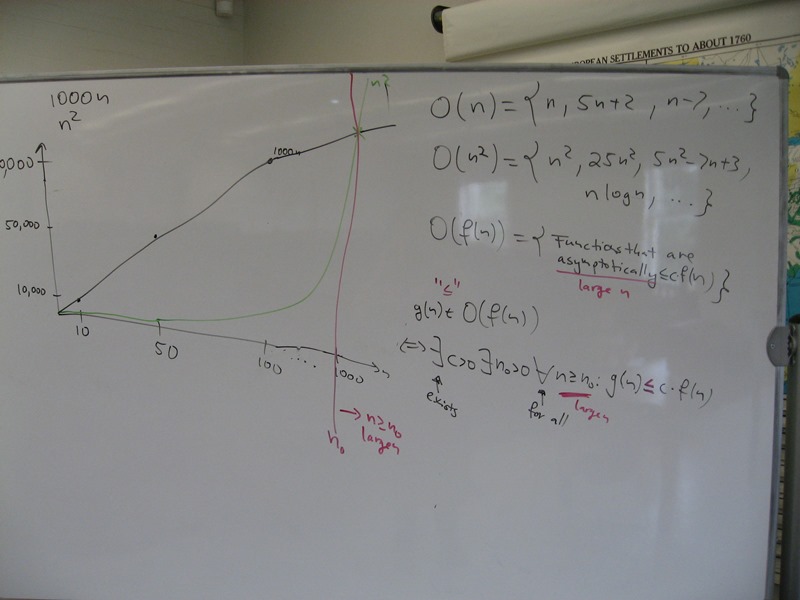 EUROPEAN SETTLEMENTS TO ABOUT 1760
1000n
n²
0,000
50,000
10,000
10
50
100
....
1000
n
1000n
n²
n₀
→ n ≥ n₀
large n
O(n) = { n, 5n+2, n-7, ... }
O(n²) = { n², 25n², 5n²-7n+3,
n log n, ... }
O(f(n)) = { Functions that are
asymptotically ≤ c·f(n) }
large n
"≤"
g(n) ∈ O(f(n))
⇔ ∃ c>0 ∃ n₀>0 ∀ n≥n₀: g(n) ≤ c·f(n)
exists
for all
large n